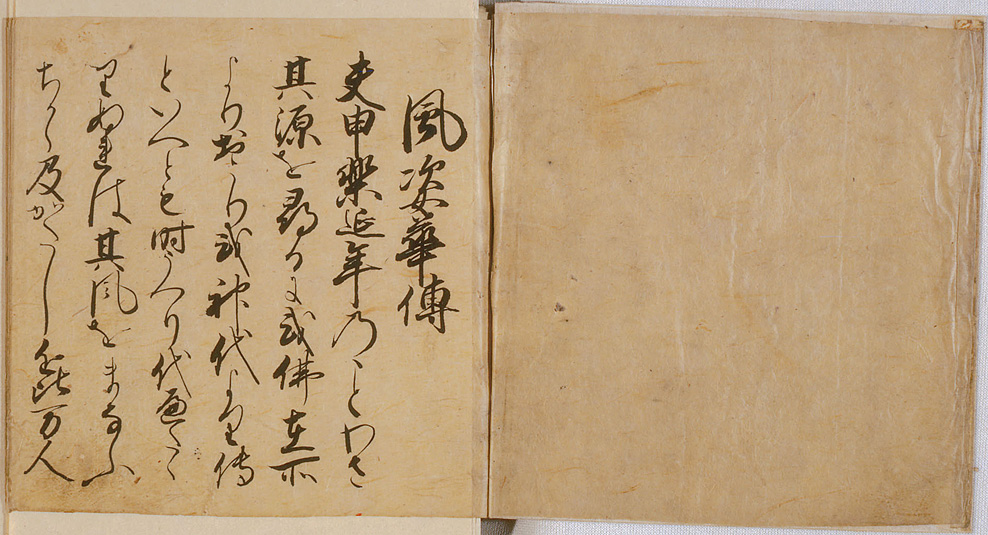 風姿華傳
夫申樂延年乃ことわさ
其源を尋るに或佛在所
よりおこり或神代より傳
といへとも時うつり代へたゝ
りぬれは其風をまなふ
ちから及かたし近比万人